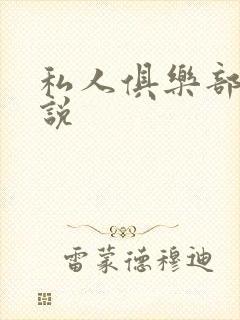 私人俱樂部
說
雷蒙德穆迪